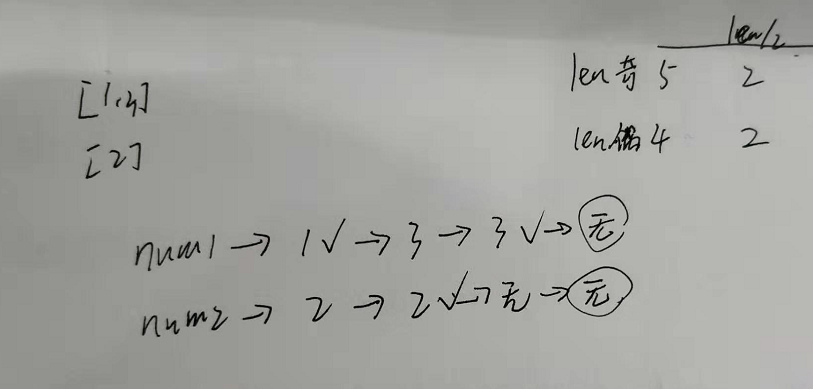 len/2
len奇 5 2
[1,3]
len偶 4 2
[2]
num1 → 1√ → 3 → 3 √ → 无
num2 → 2 → 2 √ → 无 → 无